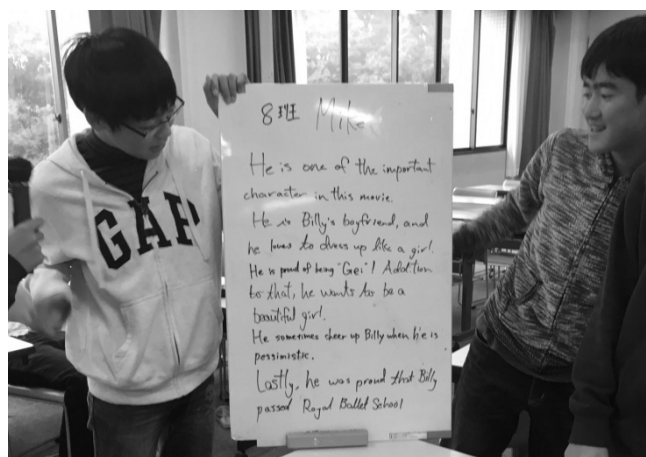 8班 Mike
He is one of the important
character in this movie.
He is Billy's boyfriend, and
he loves to dress up like a girl.
He is proud of being "Gei"! Addition
to that, he wants to be a
beautiful girl.
He sometimes cheer up Billy when he is
pessimistic.
Lastly, he was proud that Billy
passed Royal Ballet School
GAP